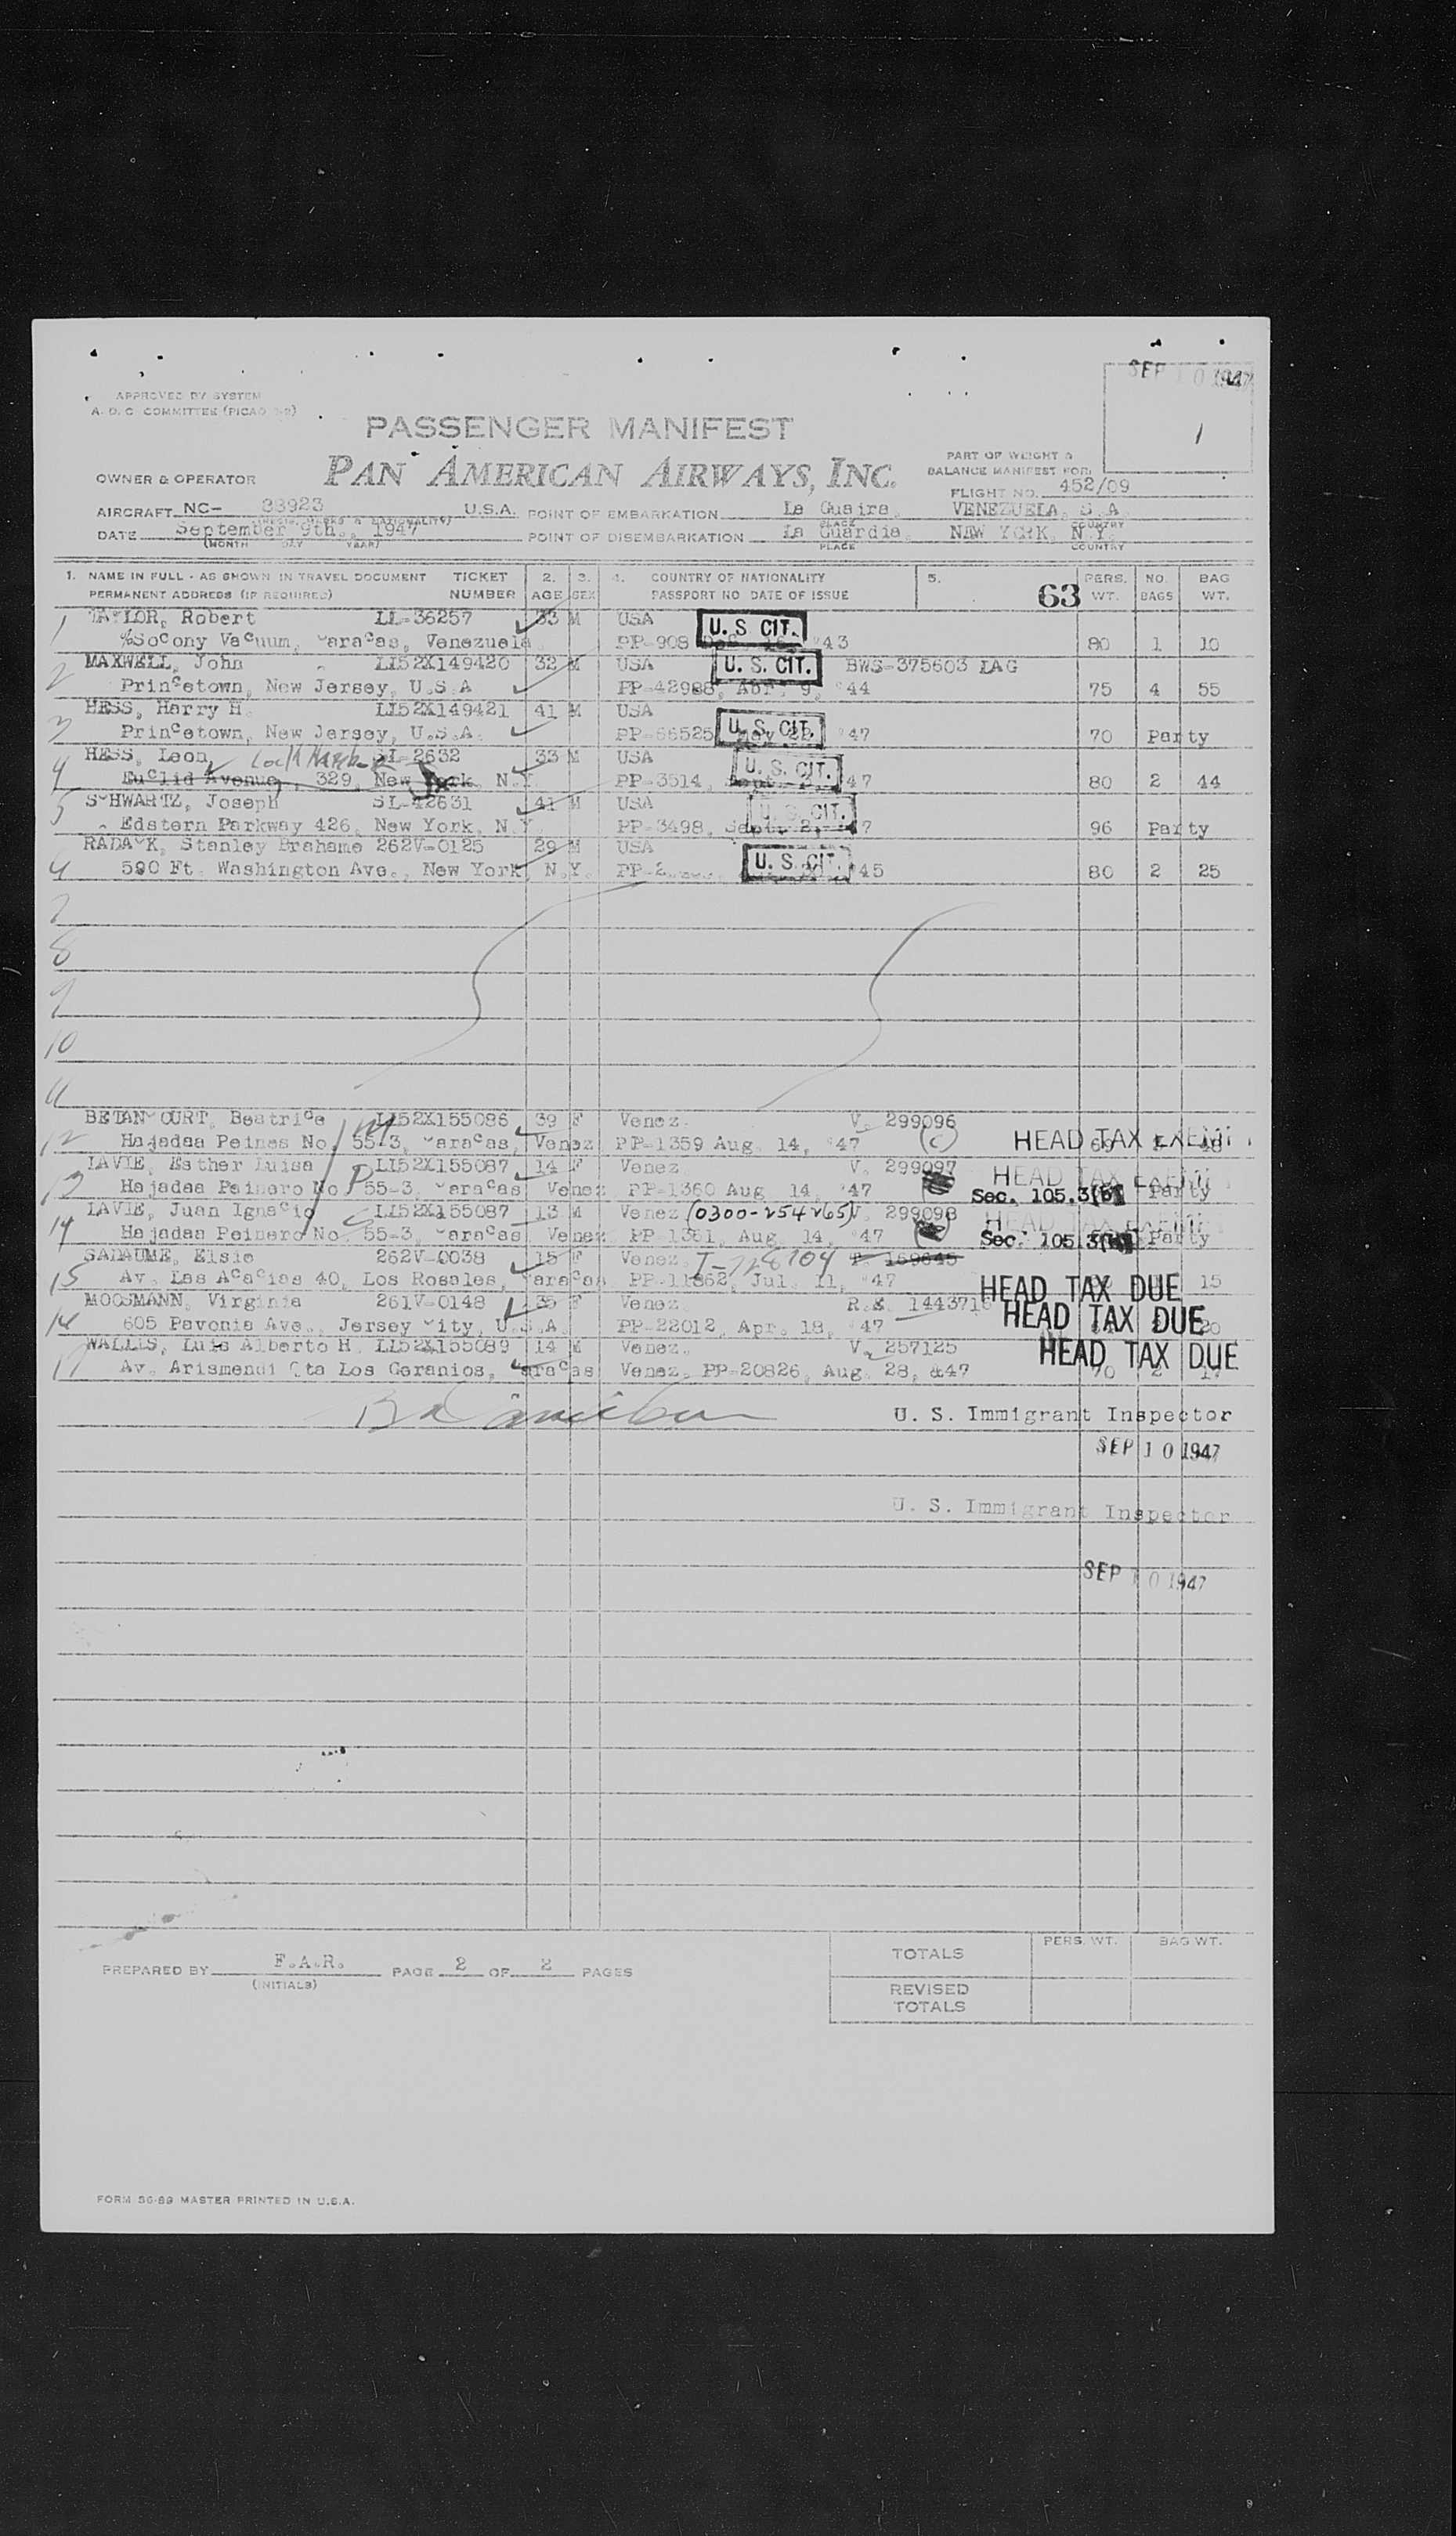 SEP 10 1947
APPROVED BY SYSTEM
A.D.C. COMMITTEE (PICAO
1
PASSENGER MANIFEST
PART OF WEIGHT &
BALANCE MANIFEST FOR:
OWNER & OPERATOR PAN AMERICAN AIRWAYS, INC.
FLIGHT NO. 452/09
AIRCRAFT NC- 33923 U.S.A. POINT OF EMBARKATION La Guaira, VENEZUELA, S.A.
PLACE COUNTRY
DATE September 9th., 1947 POINT OF DISEMBARKATION La Guardia, NEW YORK, N.Y.
(MONTH DAY YEAR) PLACE COUNTRY
1. NAME IN FULL - AS SHOWN IN TRAVEL DOCUMENT TICKET 2. 3. 4. COUNTRY OF NATIONALITY 5. 63 PERS. NO. BAG
PERMANENT ADDRESS (IF REQUIRED) NUMBER AGE SEX PASSPORT NO DATE OF ISSUE WT. BAGS WT.
1 TAYLOR, Robert LL-36257 33 M USA U.S CIT.
%Socony Vacuum, Caracas, Venezuela PP-908 43 80 1 10
2 MAXWELL, John LL52X149420 32 M USA U.S. CIT. BWS-375603 LAG
Princetown, New Jersey, U.S.A PP-42988, Apr. 9, '44 75 4 55
3 HESS, Harry H. LL52X149421 41 M USA U.S. CIT.
Princetown, New Jersey, U.S.A. PP-66525 '47 70 Party
4 HESS, Leon, SL-2632 33 M USA U.S. CIT.
Euclid Avenue, 329, New York, N.Y PP-3514, Sept. 2, 47 80 2 44
5 SCHWARTZ, Joseph SL-42631 41 M USA U.S. CIT.
Edstern Parkway 426, New York, N.Y. PP-3498, Sept. 2, 47 96 Party
6 RADACK, Stanley Brahame 262V-0125 29 M USA U.S CIT.
590 Ft. Washington Ave., New York, N.Y. PP-2 '45 80 2 25
7
8
9
10
11
BETANCOURT, Beatrice LL52X155086 39 F Venez. V. 299096
12 Hajadas Peines No. 55-3, Caracas, Venez PP-1359 Aug. 14, '47 (c) HEAD TAX EXEMPT 48
LAVIE, Esther Luisa LL52X155087 14 F Venez. V. 299097 HEAD TAX EXEMPT
13 Hajadas Peinero No 55-3, Caracas Venez PP-1360 Aug 14, '47 Sec. 105.3(b) Party
LAVIE, Juan Ignacio LL52X155087 13 M Venez (0300-254265) V. 299098 HEAD TAX EXEMPT
14 Hajadas Peinero No 55-3, Caracas Venez PP 1361, Aug. 14, '47 Sec. 105.3(b) Party
SADAUME, Elsie 262V-0038 15 F Venez. T-728704 T. 169845
15 Av. Las Acacias 40, Los Rosales, Caracas PP-11862, Jul. 11, '47 HEAD TAX DUE 15
MOOSMANN, Virginia 261V-0148 35 F Venez. R.E. 1443716
16 605 Pavonia Ave., Jersey City, U.S.A. PP-22012, Apr. 18, '47 HEAD TAX DUE 20
WALLIS, Luis Alberto H. LL52X155089 14 M Venez. V. 257125 HEAD TAX DUE
17 Av. Arismendi Qta Los Geranios, Caracas Venez. PP-20826, Aug. 28, &47 70 2 17
U. S. Immigrant Inspector
SEP 10 1947
U. S. Immigrant Inspector
SEP 10 1947
PREPARED BY F.A.R. PAGE 2 OF 2 PAGES
(INITIALS)
TOTALS PERS. WT. BAG WT.
REVISED
TOTALS
FORM 36-89 MASTER PRINTED IN U.S.A.